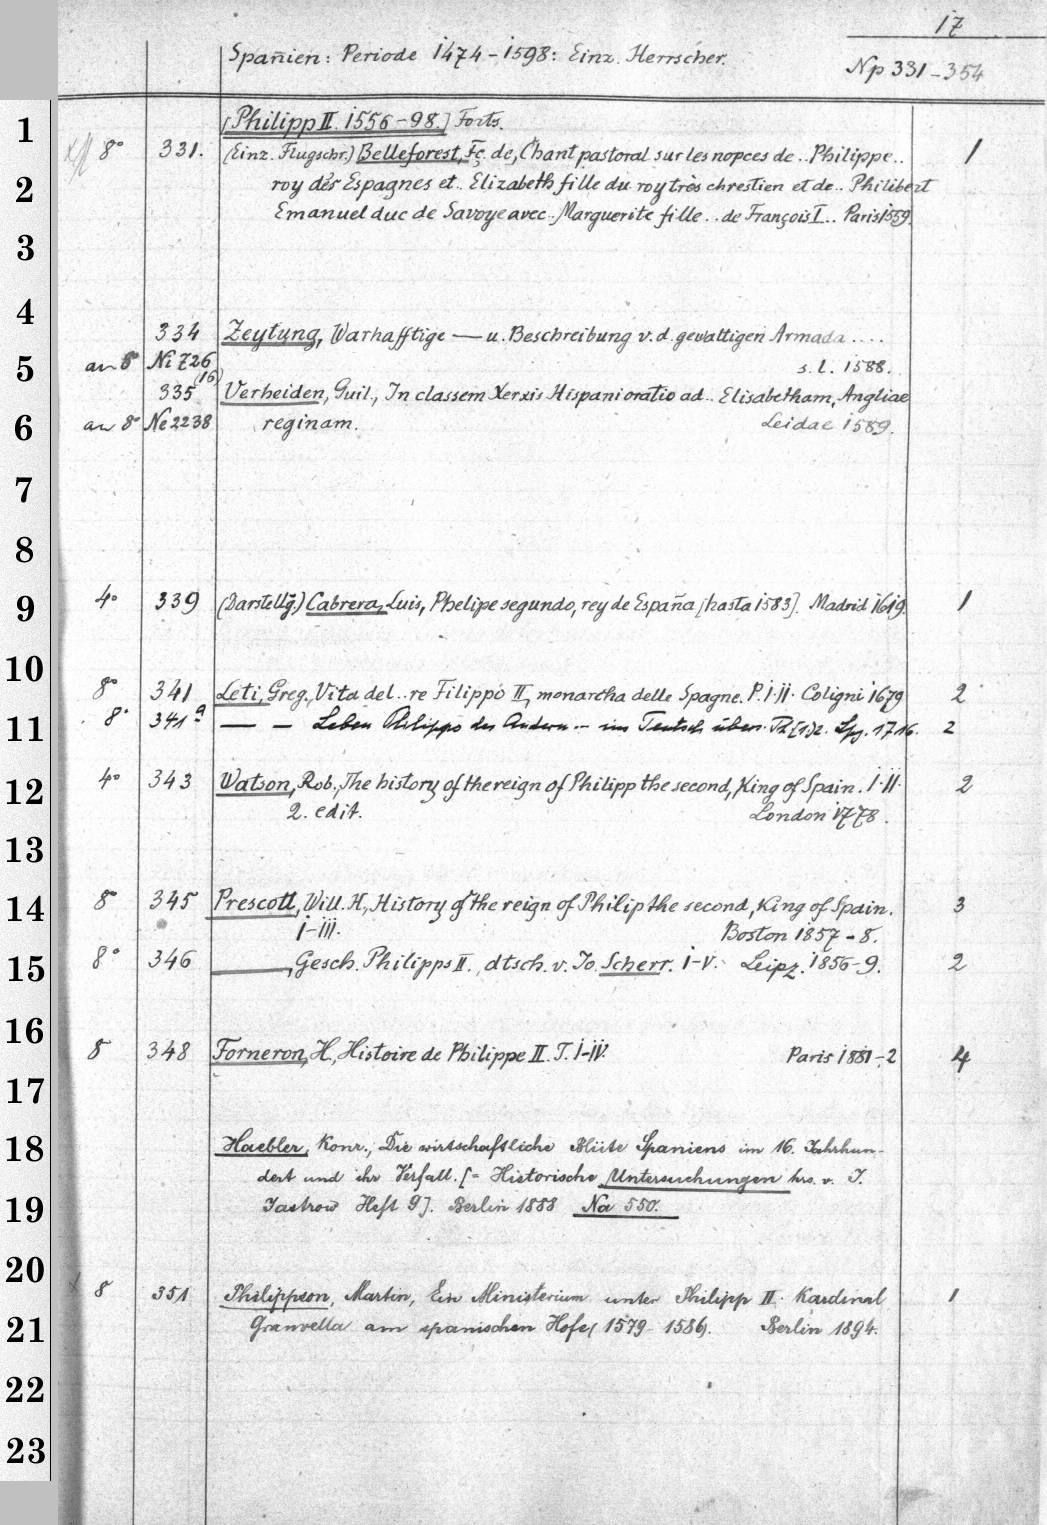 17
Spanien: Periode 1474-1598: Einz. Herrscher.
Np 331-354
1
[Philipp II. 1556-98.] Forts.
8° 331. (Einz. Flugschr.) Belleforest, Fç. de, Chant pastoral sur les nopces de.. Philippe.. 1
2
roy des Espagnes et.. Elizabeth fille du roy très chrestien et de.. Philibert
Emanuel duc de Savoye avec.. Marguerite fille.. de François I.. Paris 1559.
3
4
334 Zeytung, Warhafftige — u. Beschreibung v. d. gewaltigen Armada ....
5
an 8° Ni 726 (16) s. l. 1588.
335 Verheiden, Guil., In classem Xerxis Hispani oratio ad.. Elisabetham, Angliae
6
an 8° Ne 2238 reginam. Leidae 1589.
7
8
9
4° 339 (Darstellg.) Cabrera, Luis, Phelipe segundo, rey de España [hasta 1583]. Madrid 1619. 1
10
8° 341 Leti, Greg., Vita del.. re Filippo II, monarcha delle Spagne. P. I. II. Coligni 1679 2
11
8° 341a — — Leben Philippo des Andern .. ins Teutsch übers. Th. [1.]2. Lpg. 1716. 2
12
4° 343 Watson, Rob., The history of the reign of Philipp the second, King of Spain. I. II. 2
2. edit. London 1778.
13
14
8° 345 Prescott, Will. H., History of the reign of Philip the second, King of Spain. 3
I-III. Boston 1857-8.
15
8° 346 ——, Gesch. Philipps II. dtsch. v. Jo. Scherr. I-V. Leipz. 1856-9. 2
16
8 348 Forneron, H., Histoire de Philippe II. T. I-IV. Paris 1881-2 4
17
18
Haebler, Konr., Die wirtschaftliche Blüte Spaniens im 16. Jahrhun-
dert und ihr Verfall. [= Historische Untersuchungen hrs. v. J.
19
Jastrow Heft 9]. Berlin 1888 Na 550.
20
8 351 Philippson, Martin, Ein Ministerium unter Philipp II. Kardinal 1
21
Granvella am spanischen Hofe (1579-1586). Berlin 1894.
22
23